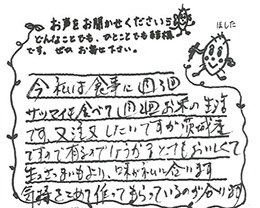 お声をお聞かせください!!
どんなことでも、ひとことでも結構
です。ぜひ お寄せ下さい。
ほした
今 私は 食事に 週3回
サツマイモ食べて 週 お米の生活
です。又注文したいですが 茨城産
ですので有るのでしょうか とてもおいしくて
生さつまいもより、味がれいに合います
気持をこめて作ってもらっているのが合います